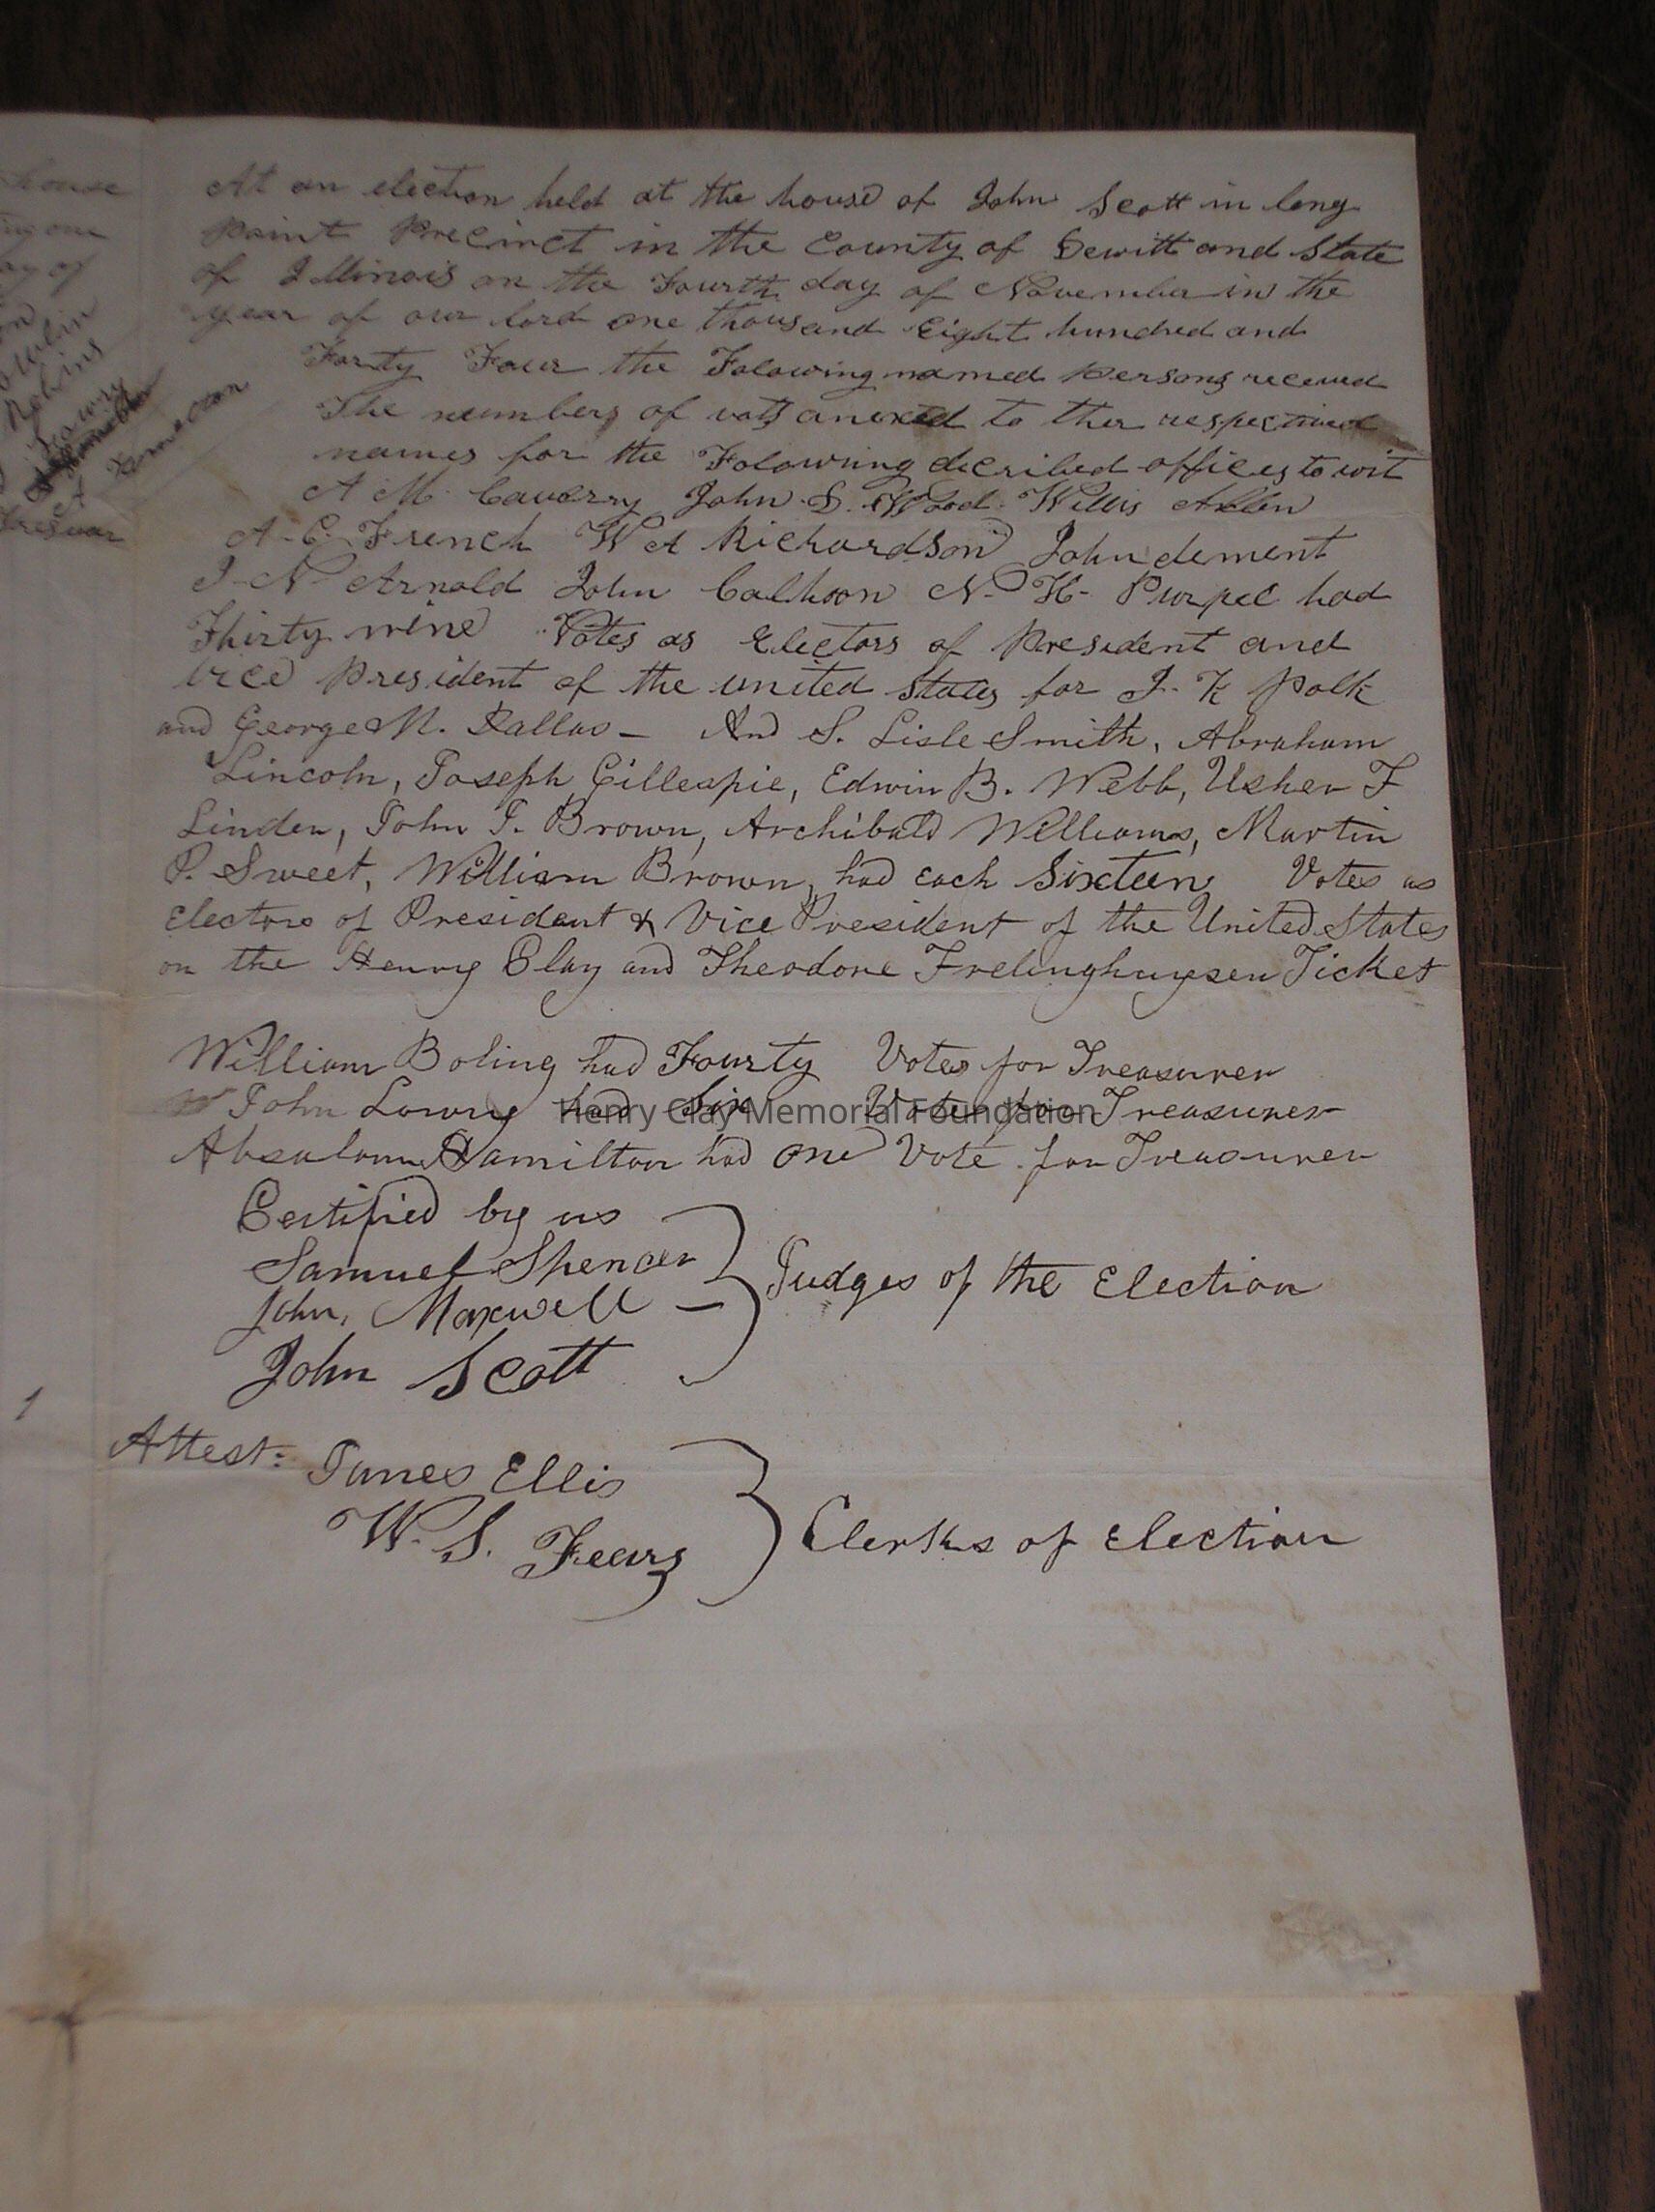 house
At an election held at the house of John Scott in long
Point Precinct in the County of Dewitt and State
of Illinois on the Fourth day of November in the
year of our lord one thousand Eight hundred and
Forty Four the Folowing named persons received
The numbers of vots anexed to ther respective
names for the Folowing decribed offices to wit
A M Cavarry John D. Wood Willis Allen
A. C. French W A Richardson John dement
I. N Arnold John Calhoon N. H. Purpel had
Thirty nine Votes as Electors of President and
vice President of the united States for J. K Polk
and George M. Dallas — And S. Lisle Smith, Abraham
Lincoln, Joseph Gillespie, Edwin B. Webb, Usher F
Linder, John J. Brown, Archibald Williams, Martin
P. Sweet, William Brown, had each Sixteen Votes as
Electors of President & Vice President of the United States
on the Henry Clay and Theodore Frelinghuysen Ticket
William Boling had Fourty Votes for Treasurer
John Lowry had Six Votes for Treasurer
Henry Clay Memorial Foundation
Absalom Hamilton had one Vote for Treasurer
Certified by us
Samuel Spencer
John, Maxwell —
John Scott
Judges of the Election
Attest: James Ellis
W. S. Fears
Clerks of Election
1